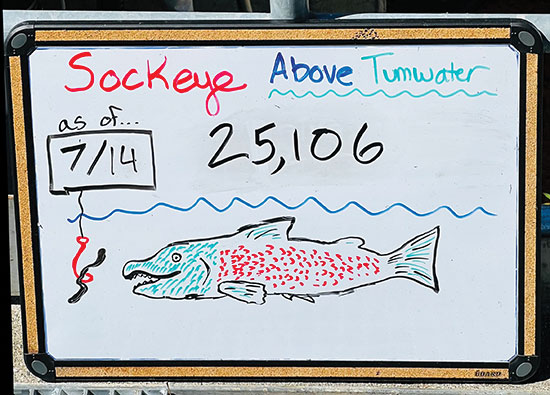 Sockeye Above Tumwater
as of...
7/14
25,106
BOARD